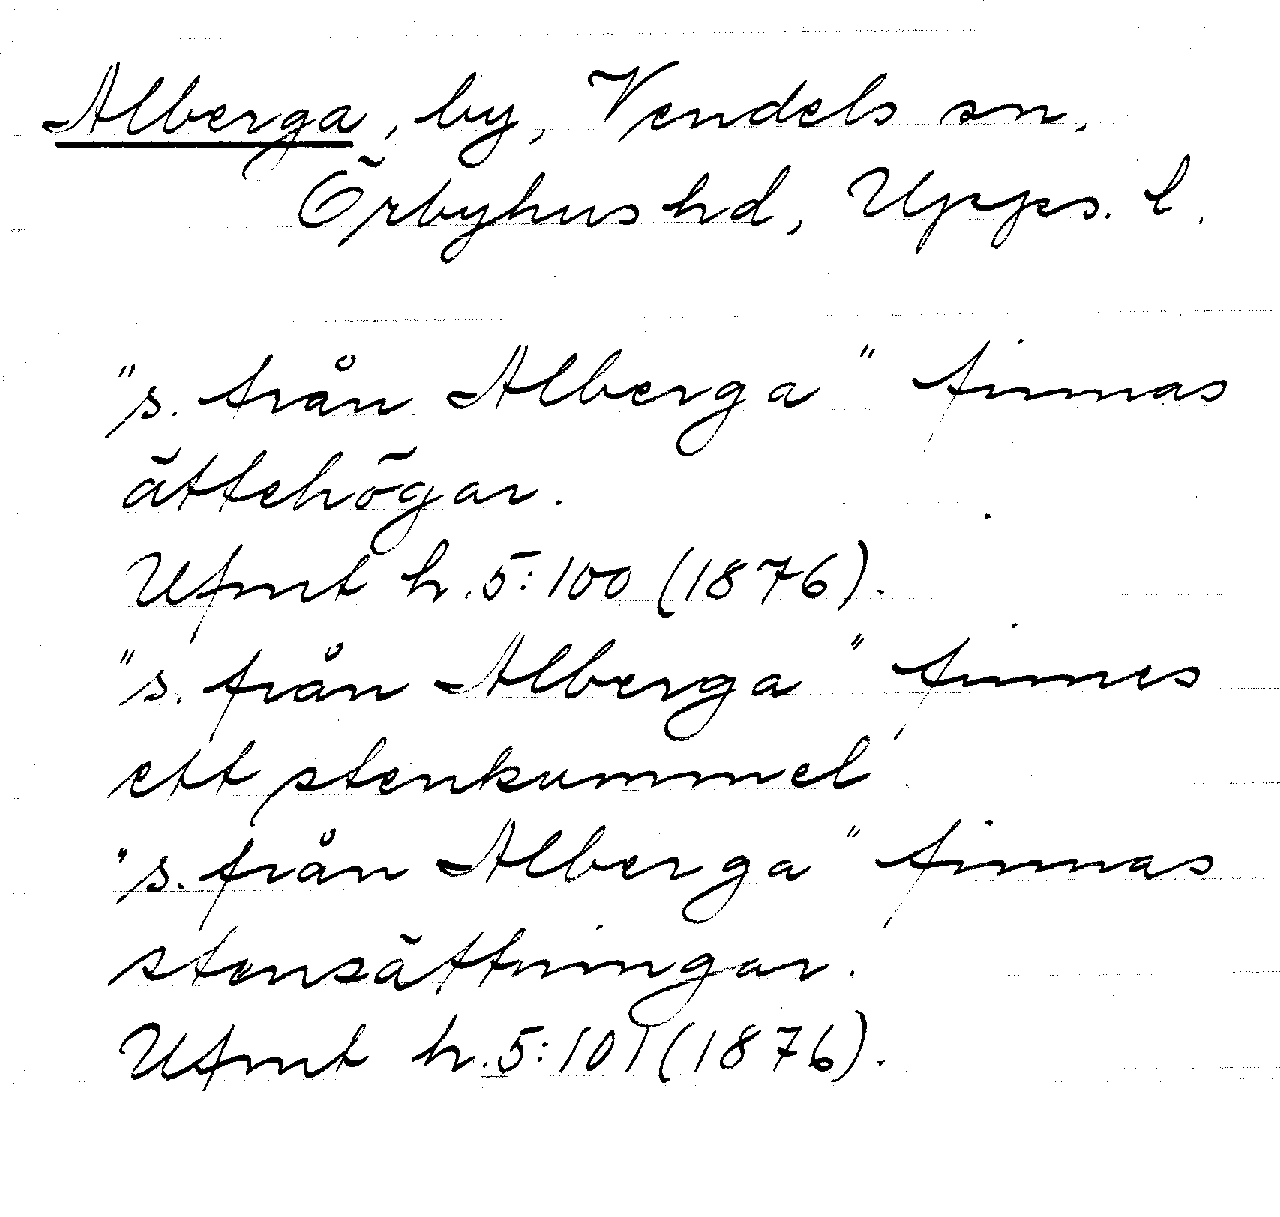 Alberga, by, Vendels sn,
Örbyhus hd, Upps. l.
"s. från Alberga" finnas
ättehögar.
Ufmt h.5:100 (1876).
"s. från Alberga" finnes
ett stenkummel
"s. från Alberga" finnas
stensättningar.
Ufmt h.5:101 (1876).